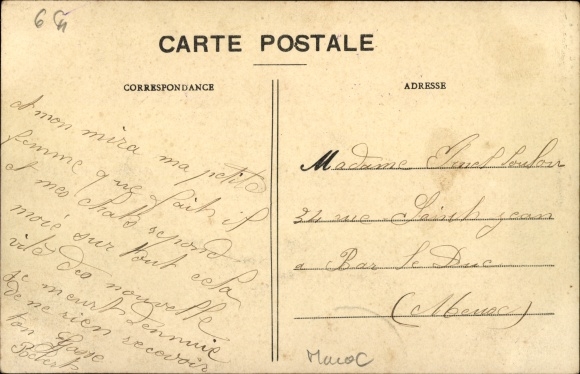 CARTE POSTALE
CORRESPONDANCE
ADRESSE
et mon mira ma petite
femme que fait il
et mes chats repond
moié sur tout cela
vite des nouvelle
je meurt dennuie
de ne rien recevoir
ton
Madame
24 rue Saint jean
a Bar le Duc
(Meuse)
Maroc